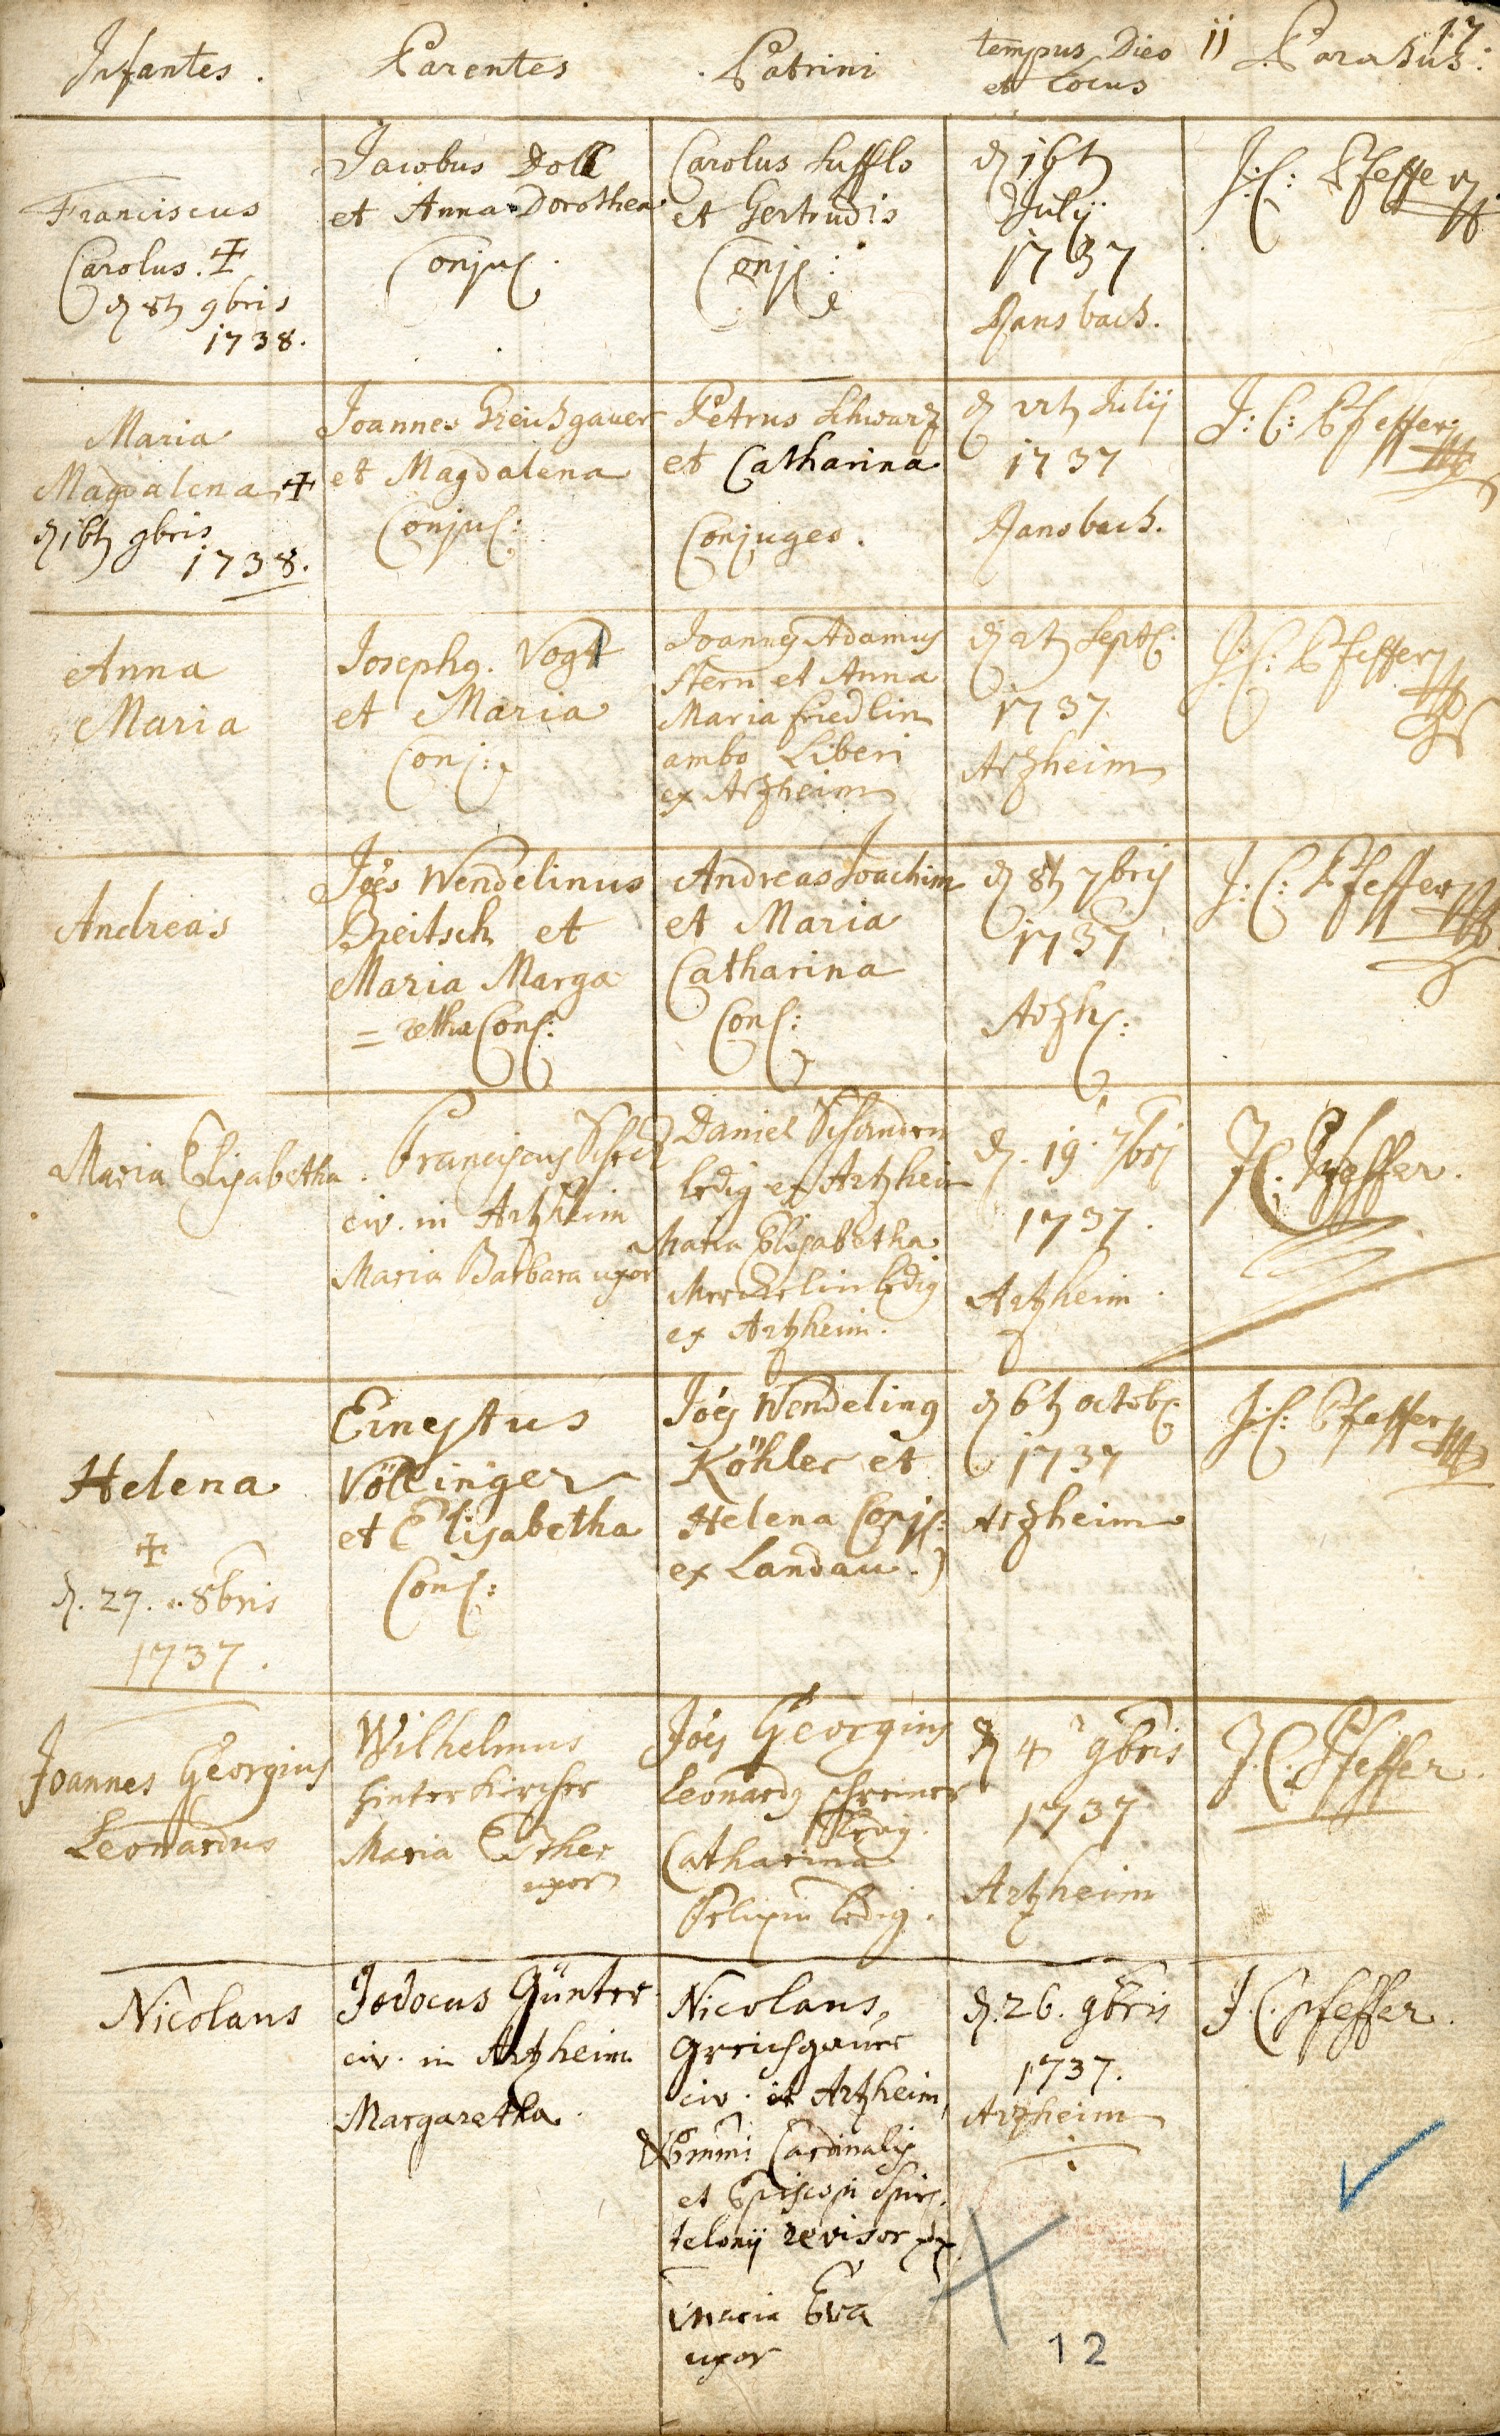 Infantes.
Parentes
Patrini
tempus Dies
et Locus
11
Parochus:
17
Franciscus
Carolus. +
d 8t 9bris
1738.
Jacobus Doll
et Anna Dorothea
Conjug.
Carolus
et Gertrudis
Conj:
d 16t
Julij
1737
Ransbach.
J: C: Pfeffer
Maria
Magdalena +
d 16t 9bris
1738.
Joannes Greichgauer
et Magdalena
Conjug:
Petrus Schwarz
et Catharina
Conjuges.
d 22t Julij
1737
Ransbach.
J: C: Pfeffer
Anna
Maria
Josephg. Vogt
et Maria
Conj:
Joannes Adamus
Stern et Anna
Maria friedlin
ambo Liberi
ex Arzheim
d 2t Sept:
1737.
Arzheim
J: C: Pfeffer
Andreas
Jöes Wendelinus
Breitsch et
Maria Marga
= retha Con:
Andreas Joachim
et Maria
Catharina
Con:
d 8t 7bris
1737
Arzh:
J: C: Pfeffer
Maria Elisabetha.
Franciscus
civ. in Artzheim
Maria Barbara uxor
Daniel
ledig ex Artzheim
Maria Elisabetha
ledig
ex Artzheim.
d. 19. 7bris
1737.
Artzheim
J C. Pfeffer.
Helena
+
d. 27. 8bris
1737.
Ernestus
Völlinger
et Elisabetha
Con:
Jöes Wendeling
Köhler et
Helena Conj:
ex Landau.)
d 6t octob:
1737
Arzheim
J: C: Pfeffer
Joannes Georgius
Leonardus
Wilhelmus
hinterkircher
Maria Esther
uxor
Jöes Georgius
Leonardg schreiner
ledig.
Catharina
ledig.
d 4t 9bris
1737
Artzheim
J. C. Pfeffer.
Nicolaus
Jodocus Günter
civ. in Artzheim
Margaretha.
Nicolaus
Greichgauer
civ. in Artzheim,
Emmi Cardinalis
et Episcopi Spir.
telonij revisor
Maria Eva
uxor
d. 26. 9bris
1737.
Arzheim
J. C. Pfeffer.
12